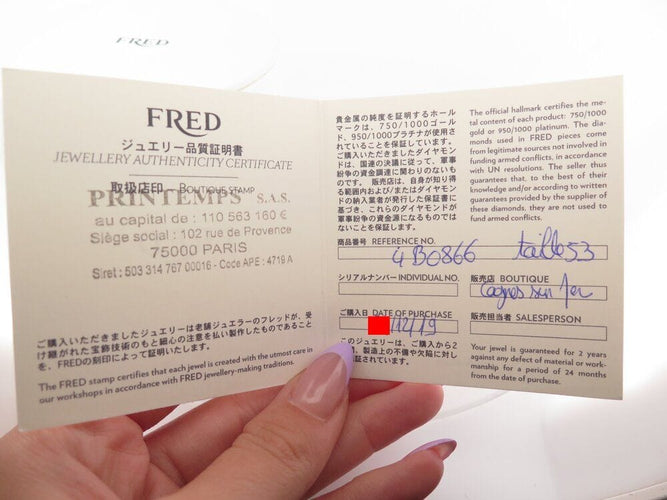 FRED
FRED
ジュエリー品質証明書
JEWELLERY AUTHENTICITY CERTIFICATE
取扱店印 – BOUTIQUE STAMP
PRINTEMPS S.A.S.
au capital de : 110 563 160 €
Siège social : 102 rue de Provence
75000 PARIS
Siret : 503 314 767 00016 - Code APE : 4719 A
ご購入いただきましたジュエリーは老舗ジュエラーのフレッドが、受
け継がれた宝飾技術のもと細心の注意を払い製作したものであること
を、FREDの刻印によって証明いたします。
The FRED stamp certifies that each jewel is created with the utmost care in
our workshops in accordance with FRED jewellery-making traditions.
貴金属の純度を証明するホール
マークは、750/1000ゴール
ド、950/1000プラチナが使用さ
れていることを保証しています。
ご購入いただきましたダイヤモン
ドは、国連の決議に従って、軍事
紛争の資金調達に関わりのないも
のです。 販売店は、自身が知り得
る範囲内および/またはダイヤモン
ドの納入業者が発行した保証書に
基づき、これらのダイヤモンドが
軍事紛争の資金源になるものでは
ないことを保証します。
The official hallmark certifies the me-
tal content of each product: 750/1000
gold or 950/1000 platinum. The dia-
monds used in FRED pieces come
from legitimate sources not involved in
funding armed conflicts, in accordance
with UN resolutions. The seller thus
guarantees that, to the best of their
knowledge and/or according to written
guarantees provided by the supplier of
these diamonds, they are not used to
fund armed conflicts.
商品番号 REFERENCE NO.
4B0866 taille 53
シリアルナンバー INDIVIDUAL NO.
販売店 BOUTIQUE
Cagnes sur Mer
ご購入日 DATE OF PURCHASE
/12/19
販売担当者 SALESPERSON
このジュエリーは、ご購入から2
、製造上の不備や欠陥に対し
証されています。
Your jewel is guaranteed for 2 years
against any defect of material or work-
manship for a period of 24 months
from the date of purchase.